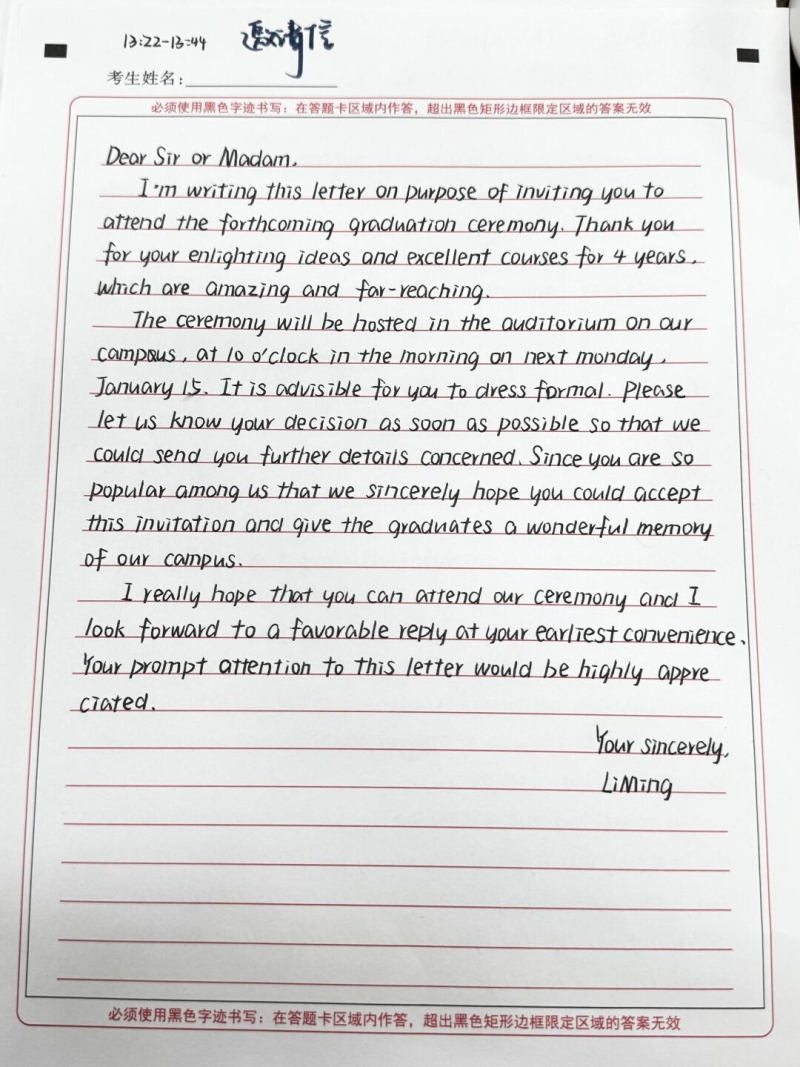 13:22-13:44 邀请信
考生姓名:
必须使用黑色字迹书写：在答题卡区域内作答，超出黑色矩形边框限定区域的答案无效
Dear Sir or Madam,
I'm writing this letter on purpose of inviting you to
attend the forthcoming graduation ceremony. Thank you
for your enlighting ideas and excellent courses for 4 years,
which are amazing and far-reaching.
The ceremony will be hosted in the auditorium on our
campus, at 10 o'clock in the morning on next monday,
January 15. It is advisible for you to dress formal. Please
let us know your decision as soon as possible so that we
could send you further details concerned. Since you are so
popular among us that we sincerely hope you could accept
this invitation and give the graduates a wonderful memory
of our campus.
I really hope that you can attend our ceremony and I
look forward to a favorable reply at your earliest convenience.
Your prompt attention to this letter would be highly appre
ciated.
Your sincerely,
LiMing
必须使用黑色字迹书写：在答题卡区域内作答，超出黑色矩形边框限定区域的答案无效